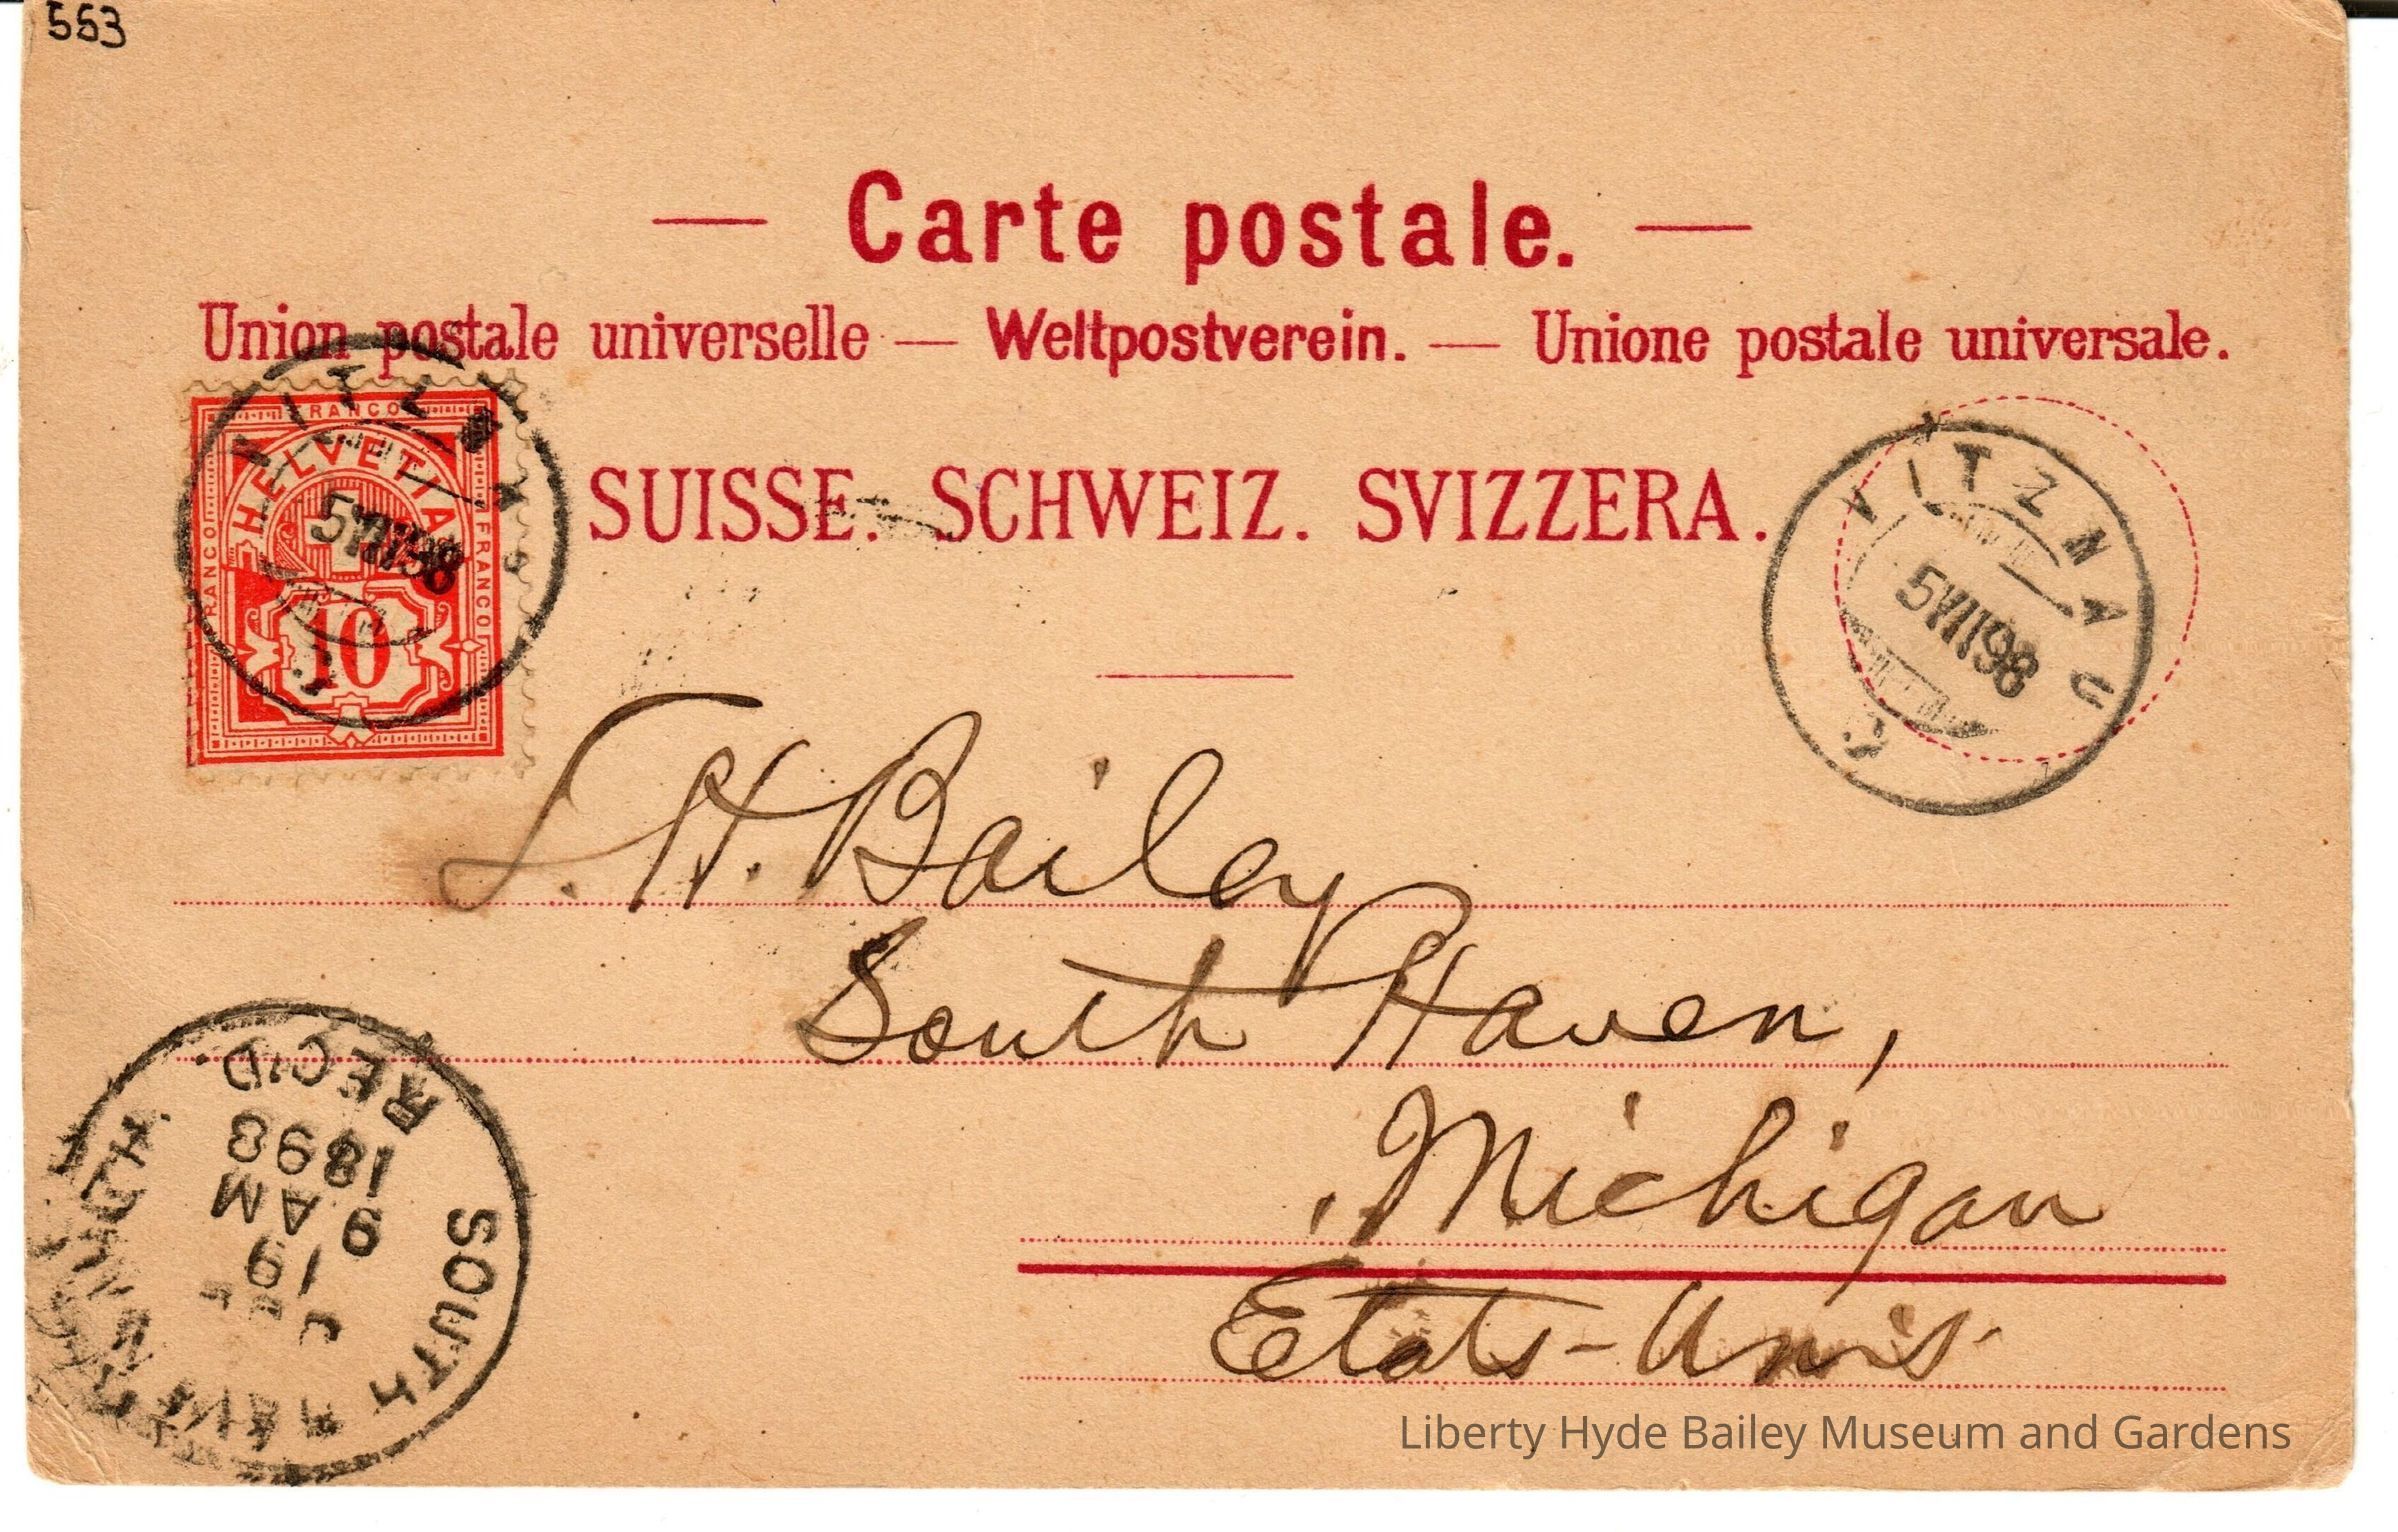 553
Carte postale.
Union postale universelle — Weltpostverein. — Unione postale universale.
FRANCO
HELVETIA
FRANCO
FRANCO
10
SUISSE. SCHWEIZ. SVIZZERA.
VITZNAU
98
VITZNAU
5 VII 98
L. H. Bailey
South Haven,
Michigan
Etats-Unis
SOUTH HAVEN MICH
19
9 AM
1898
REC'D.
Liberty Hyde Bailey Museum and Gardens